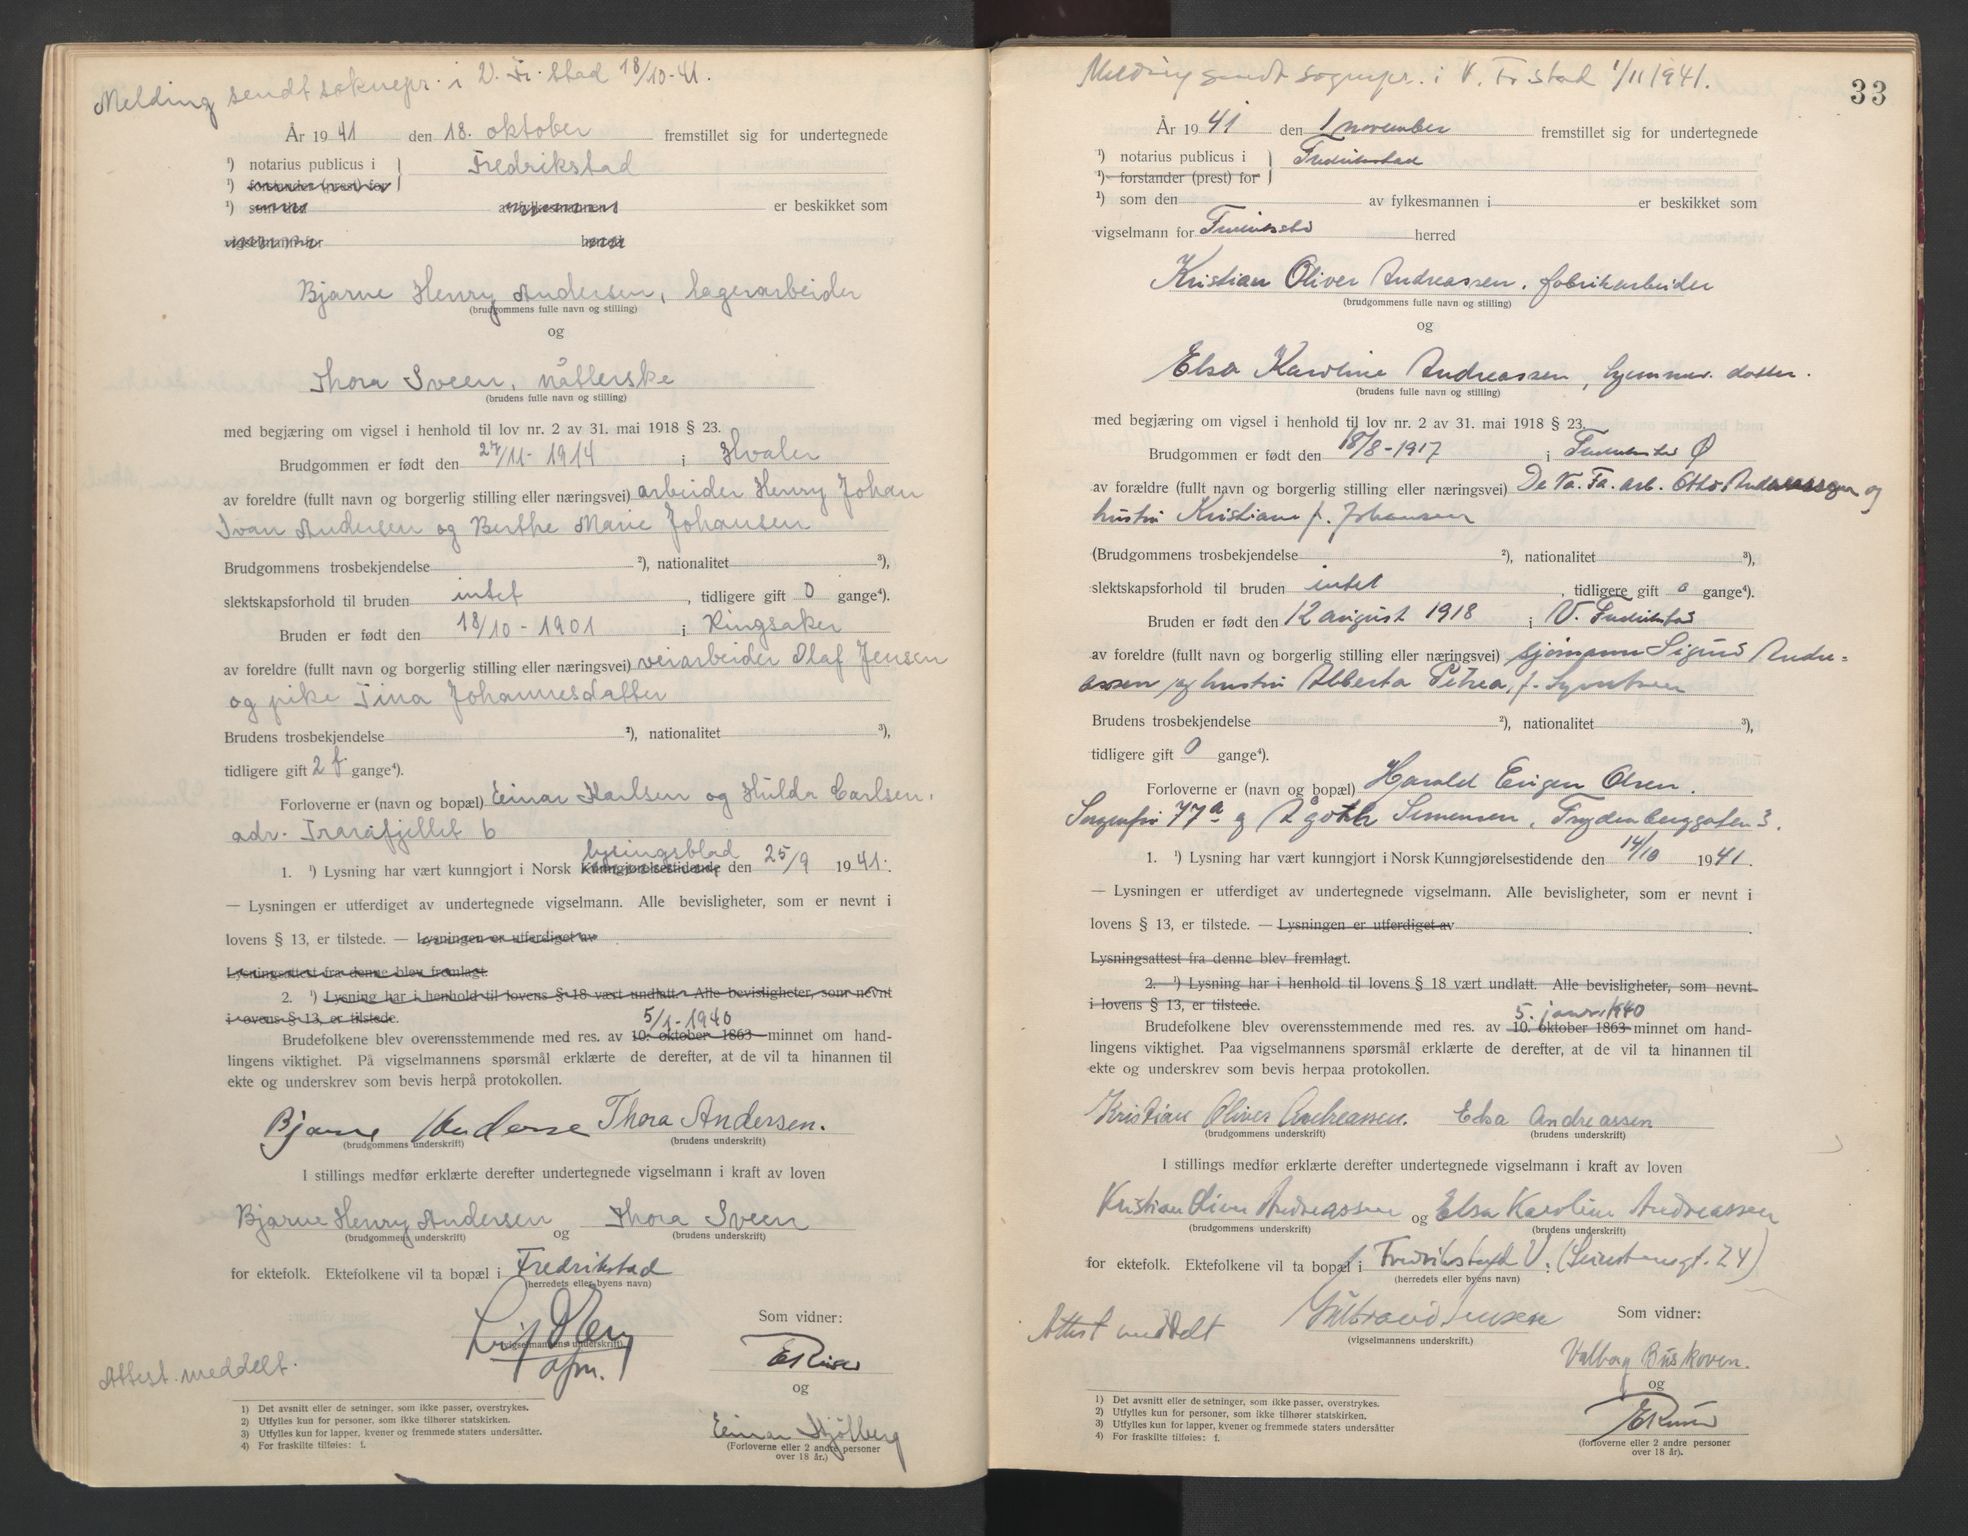 Melding sendt soknepr. i V. Fr.stad 18/10-41.
År 1941 den 18. oktober fremstillet sig for undertegnede
¹) notarius publicus i } Fredrikstad
¹) forstander (prest) for
¹) som den av fylkesmannen i er beskikket som
vigselmann for herred
Bjarne Henry Andersen, lagerarbeider
(brudgommens fulle navn og stilling)
og
Thora Sveen, nåtlerske
(brudens fulle navn og stilling)
med begjæring om vigsel i henhold til lov nr. 2 av 31. mai 1918 § 23.
Brudgommen er født den 27/11-1914 i Hvaler
av foreldre (fullt navn og borgerlig stilling eller næringsvei) arbeider Henry Johan
Ivan Andersen og Berthe Marie Johansen
Brudgommens trosbekjendelse ²), nationalitet ³),
slektskapsforhold til bruden intet, tidligere gift 0 gange⁴).
Bruden er født den 18/10-1901 i Ringsaker
av foreldre (fullt navn og borgerlig stilling eller næringsvei) veiarbeider Olaf Jensen
og pike Tina Johannesdatter
Brudens trosbekjendelse ²), nationalitet ³),
tidligere gift 2 f gange⁴).
Forloverne er (navn og bopæl) Einar Karlsen og Hulda Carlsen,
adr. Trarafjellet 6
lysingsblad
1. ¹) Lysning har vært kunngjort i Norsk Kunngjørelsestidende den 25/9 1941.
— Lysningen er utferdiget av undertegnede vigselmann. Alle bevisligheter, som er nevnt i
lovens § 13, er tilstede. — Lysningen er utferdiget av
Lysningsattest fra denne blev fremlagt.
2. ¹) Lysning har i henhold til lovens § 18 vært undlatt. Alle bevisligheter, som nevnt
i lovens § 13, er tilstede.
5/1-1940
Brudefolkene blev overensstemmende med res. av 10. oktober 1863 minnet om hand-
lingens viktighet. På vigselmannens spørsmål erklærte de derefter, at de vil ta hinannen til
ekte og underskrev som bevis herpå protokollen.
Bjarne Anderse Thora Andersen.
(brudgommens underskrift) (brudens underskrift)
I stillings medfør erklærte derefter undertegnede vigselmann i kraft av loven
Bjarne Henry Andersen og Thora Sveen
(brudgommens underskrift) (brudens underskrift)
for ektefolk. Ektefolkene vil ta bopæl i Fredrikstad
(herredets eller byens navn)
Som vidner:
(vigselmannens underskrift)
Attest meddelt.
og
Einar Mjølberg
(Forloverne eller 2 andre personer
over 18 år.)
1) Det avsnitt eller de setninger, som ikke passer, overstrykes.
2) Utfylles kun for personer, som ikke tilhører statskirken.
3) Utfylles kun for lapper, kvener og fremmede staters undersåtter.
4) For fraskilte tilføies: f.
33
Melding sendt sognepr. i V. Fr.stad 1/11 1941.
År 1941 den 1 november fremstillet sig for undertegnede
¹) notarius publicus i } Fredrikstad
¹) forstander (prest) for
¹) som den av fylkesmannen i er beskikket som
vigselmann for Fredrikstad herred
Kristian Oliver Andreassen, fabrikarbeider
(brudgommens fulle navn og stilling)
og
Elsa Karoline Andreassen, hjemmev. datter.
(brudens fulle navn og stilling)
med begjæring om vigsel i henhold til lov nr. 2 av 31. mai 1918 § 23.
Brudgommen er født den 18/8-1917 i Fredrikstad Ø
av forældre (fullt navn og borgerlig stilling eller næringsvei) De Na. Fa. arb. Otto Andreassen og
hustru Kristiane f. Johansen
(Brudgommens trosbekjendelse ²), nationalitet ³),
slektskapsforhold til bruden intet, tidligere gift 0 gange⁴).
Bruden er født den 12 august 1918 i V. Fredrikstad
av foreldre (fullt navn og borgerlig stilling eller næringsvei) sjømann Sigurd Andre-
assen og hustru Alberta Petrea, f.
Brudens trosbekjendelse ²), nationalitet ³),
tidligere gift 0 gange⁴).
Forloverne er (navn og bopæl) Harald Eugen Olsen.
Sorgenfri 77a og Ågoth Simensen, Frydenberggaten 3.
1. ¹) Lysning har vært kunngjort i Norsk Kunngjørelsestidende den 14/10 1941.
— Lysningen er utferdiget av undertegnede vigselmann. Alle bevisligheter, som er nevnt i
lovens § 13, er tilstede. — Lysningen er utferdiget av
Lysningsattest fra denne blev fremlagt.
2. ¹) Lysning har i henhold til lovens § 18 vært undlatt. Alle bevisligheter, som nevnt
i lovens § 13, er tilstede.
5. januar 1940
Brudefolkene blev overensstemmende med res. av 10. oktober 1863 minnet om hand-
lingens viktighet. Paa vigselmannens spørsmål erklærte de derefter, at de vil ta hinannen til
ekte og underskrev som bevis herpaa protokollen.
Kristian Oliver Andreassen. Elsa Andreassen
(brudgommens underskrift) (brudens underskrift)
I stillings medfør erklærte derefter undertegnede vigselmann i kraft av loven
Kristian Oliver Andreassen og Elsa Karoline Andreassen
(brudgommens underskrift) (brudens underskrift)
for ektefolk. Ektefolkene vil ta bopæl i Fredrikstad V.
(herredets eller byens navn)
Attest meddelt
Som vidner:
(vigselmannens underskrift.)
Valborg Buskoven.
og
(forloverne eller 2 andre personer
over 18 år).
1) Det avsnitt eller de setninger, som ikke passer, overstrykes.
2) Utfylles kun for personer, som ikke tilhører statskirken.
3) Utfylles kun for lapper, kvener og fremmede staters undersåtter
4) For fraskilte tilføies: f.